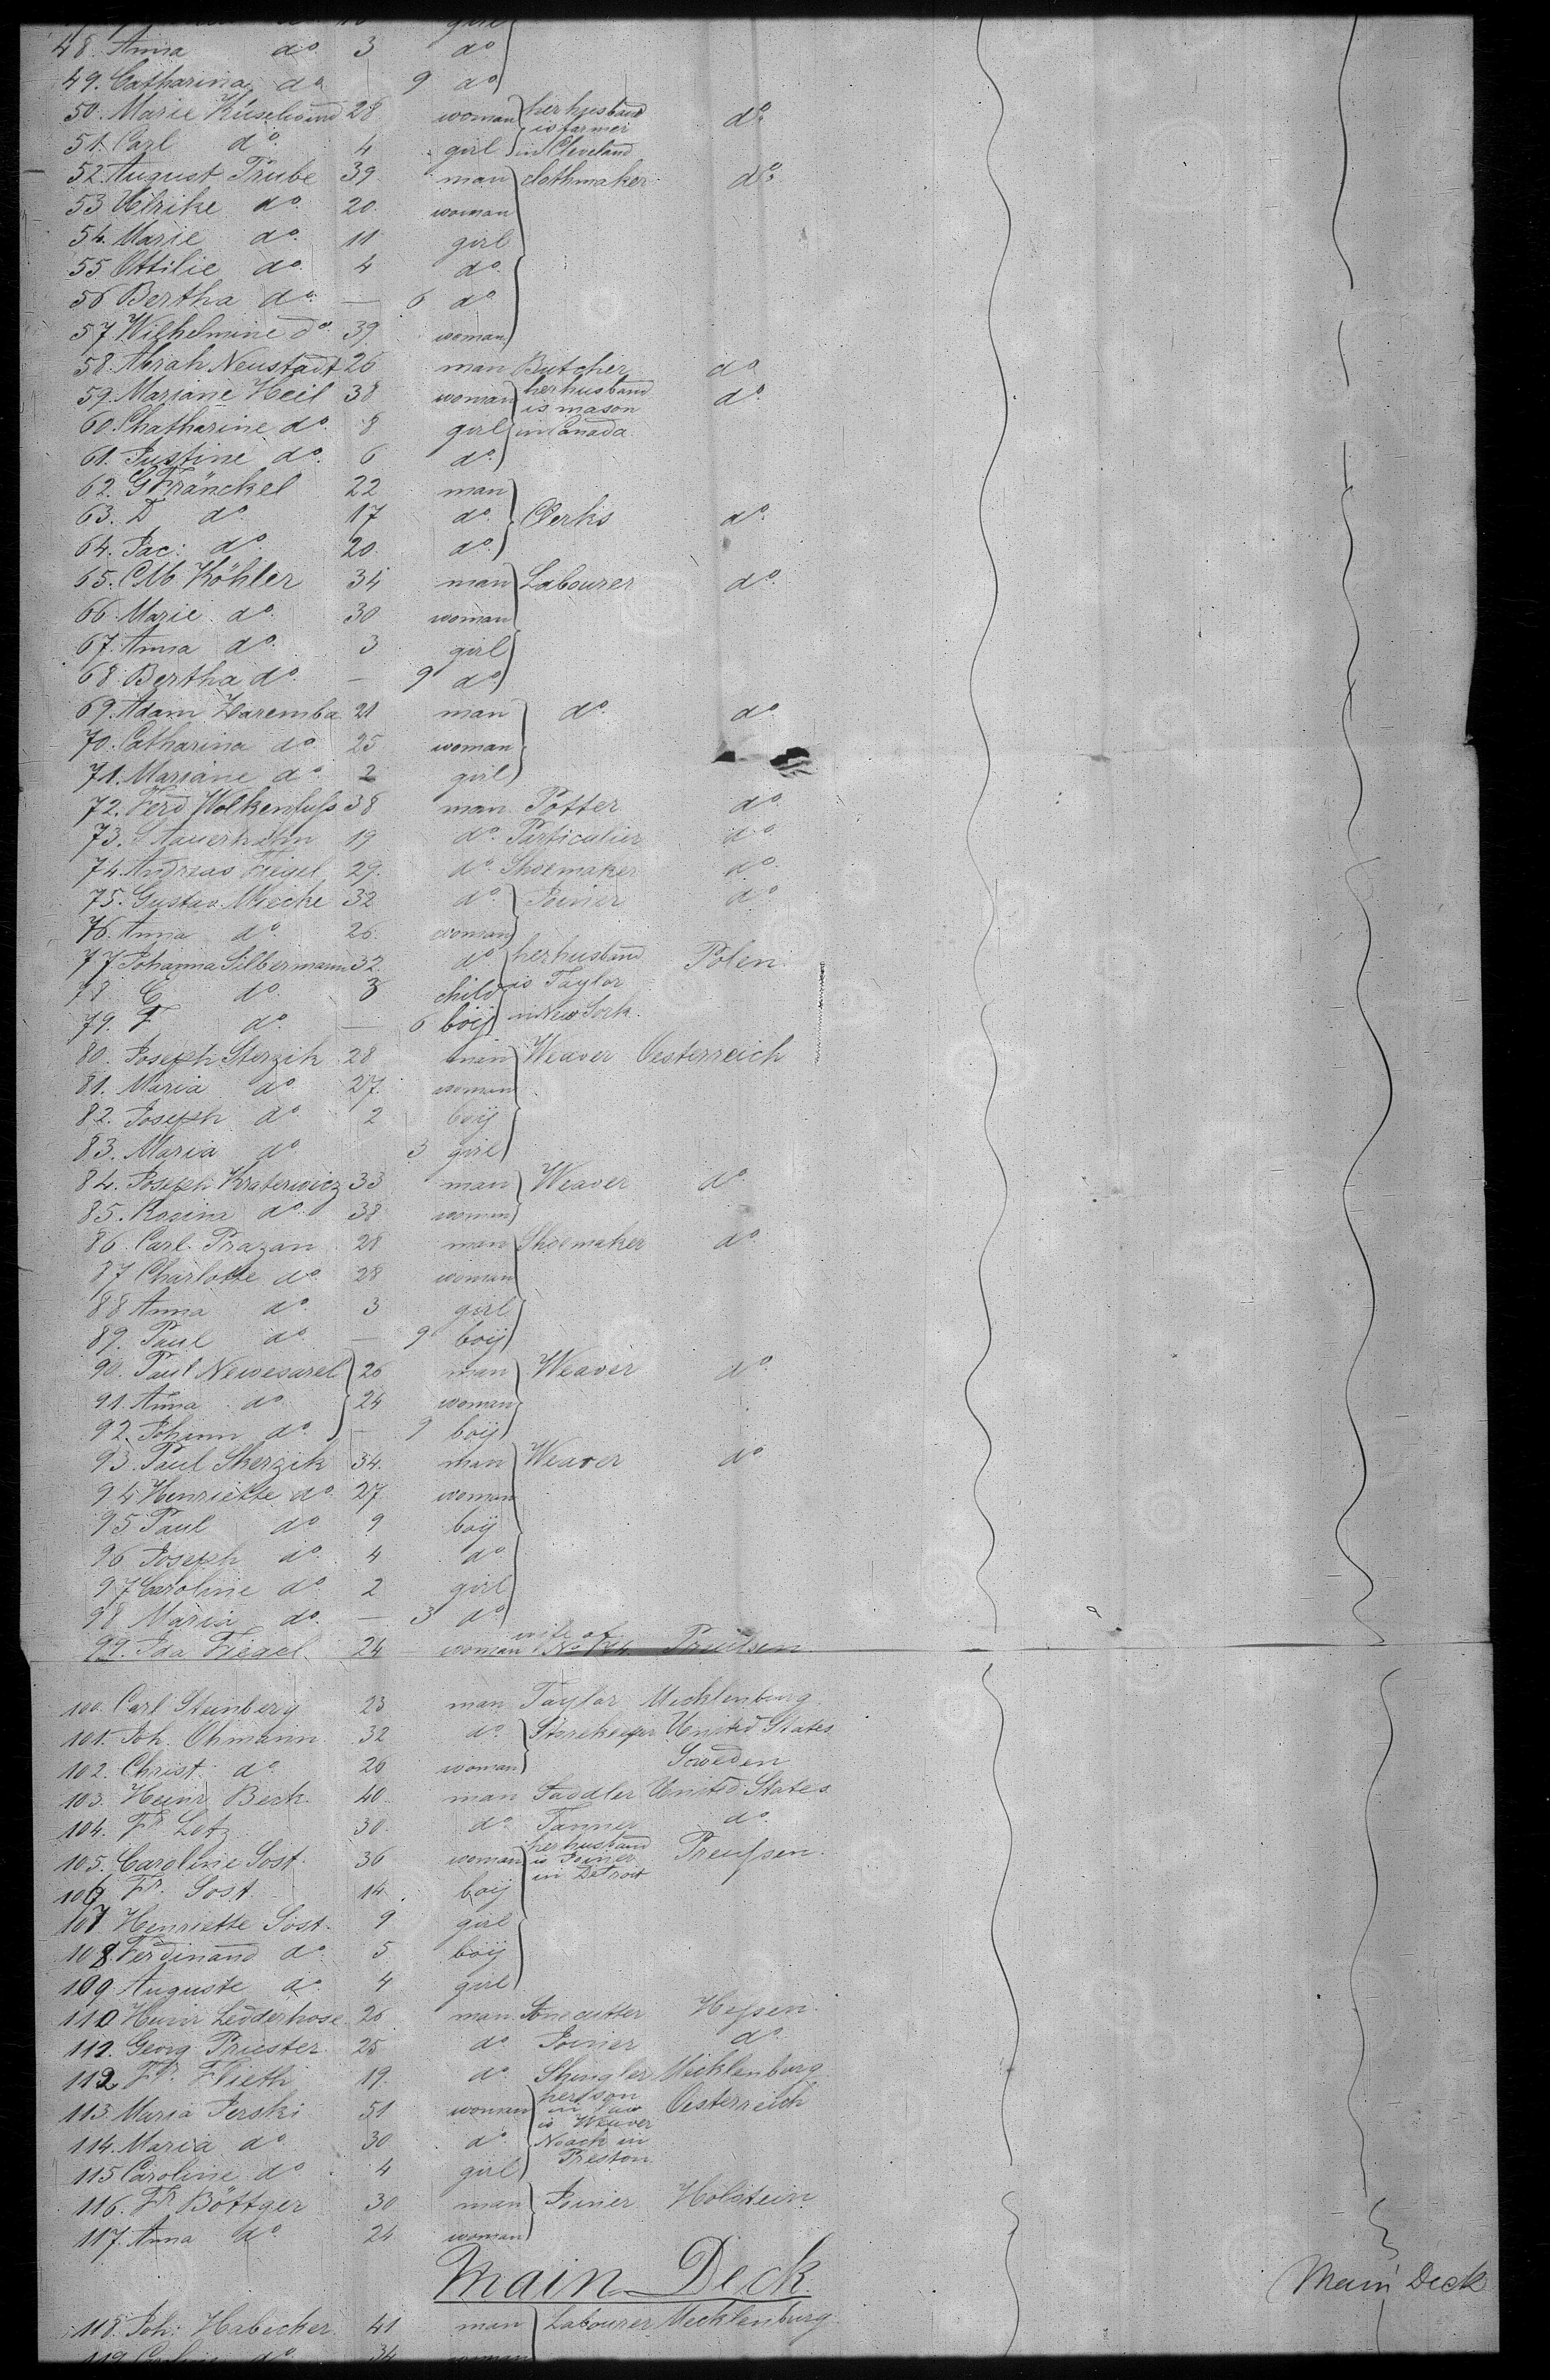 girl
48. Anna do 3 do
49. Catharina do 9 do
50. Marie Küselwind 28 woman her husband is farmer do
51. Carl do 4 girl in Cleveland
52. August Trube 39 man clothmaker do
53 Ulrike do 20 woman
54. Marie do 11 girl
55 Ottilie do 4 do
56 Bertha do — 6 do
57 Wilhelmine do 39 woman
58. Abrah Neustadt 26 man Butcher do
59. Mariane Heil 38 woman her husband is mason do
60. Chatharine do 8 girl in Canada
61. Justine do 6 do
62. G Fränckel 22 man
63. D do 17 do Clerks do
64. Jac: do 20 do
65. CM Köhler 34 man Labourer do
66. Marie do 30 woman
67. Anna do 3 girl
68. Bertha do — 9 do
69. Adam Haremba 21 man do do
70. Catharina do 25 woman
71. Mariane do 2 girl
72. Ferd Wolkenfuſs 38 man Potter do
73. S Auerhahn 19 do Particulier do
74. Andreas Fiegel 29 do Shoemaker do
75. Gustav Miecke 32 do Joiner do
76. Anna do 26 woman
77 Johanna Silbermann 32 do her husband Polen
78 C do 3 child is Taylor
79. F do — 6 boy in New York.
80. Joseph Sterzik 28 man Weaver Oesterreich
81. Maria do 27 woman
82. Joseph do 2 boy
83. Maria do 3 girl
84. Joseph Kraterwicz 33 man Weaver do
85. Rosina do 38 woman
86. Carl Prazan 28 man Shoemaker do
87 Charlotte do 28 woman
88 Anna do 3 girl
89. Paul do — 9 boy
90. Paul Newesarel 26 man Weaver do
91. Anna do 24 woman
92. Johann do — 9 boy
93. Paul Sherzik 34 man Weaver do
94 Henriette do 27 woman
95 Paul do 9 boy
96 Joseph do 4 do
97 Caroline do 2 girl
98 Maria do — 3 do
99. Ida Fiegel 24 woman wife of No 74 Preussen
100. Carl Steinberg 23 man Taylor Mecklenburg
101. Joh. Ohmann 32 do Storekeeper United States
102. Christ: do 26 woman Sweden
103. Heinr Beck 40 man Saddler United States
104. Fr Letz 30 do Tanner do
105. Caroline Sost 36 woman her husband is Joiner in Detroit Preuſsen
106 Fr. Sost 14 boy
107 Henriette Sost 9 girl
108 Ferdinand do 5 boy
109 Auguste do 4 girl
110 Heinr Ledderhose 26 man Stonecutter Heſsen
111. Georg Priester 25 do Joiner do
112 Fr. Flieth 19 do Shingler Mecklenburg
113. Maria Perski 51 woman her son in law is Weaver Oesterreich
114. Maria do 30 do Noack in
115 Caroline do 4 girl Preston
116. Fr Böttger 30 man Joiner Holstein
117. Anna do 24 woman
Main Deck
Main Deck
118. Joh: Habecker 41 man Labourer Mecklenburg
119 do 34 woman